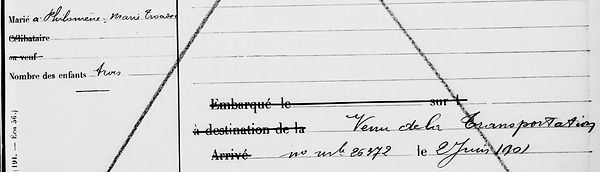 Marié à Philomène, Marie
Célibataire
ou veuf
Nombre des enfants trois
Embarqué le sur l
à destination de la Venu de la Transportation
Arrivé no mle 25372 le 2 Juin 1901
(191. — Éco 56.)